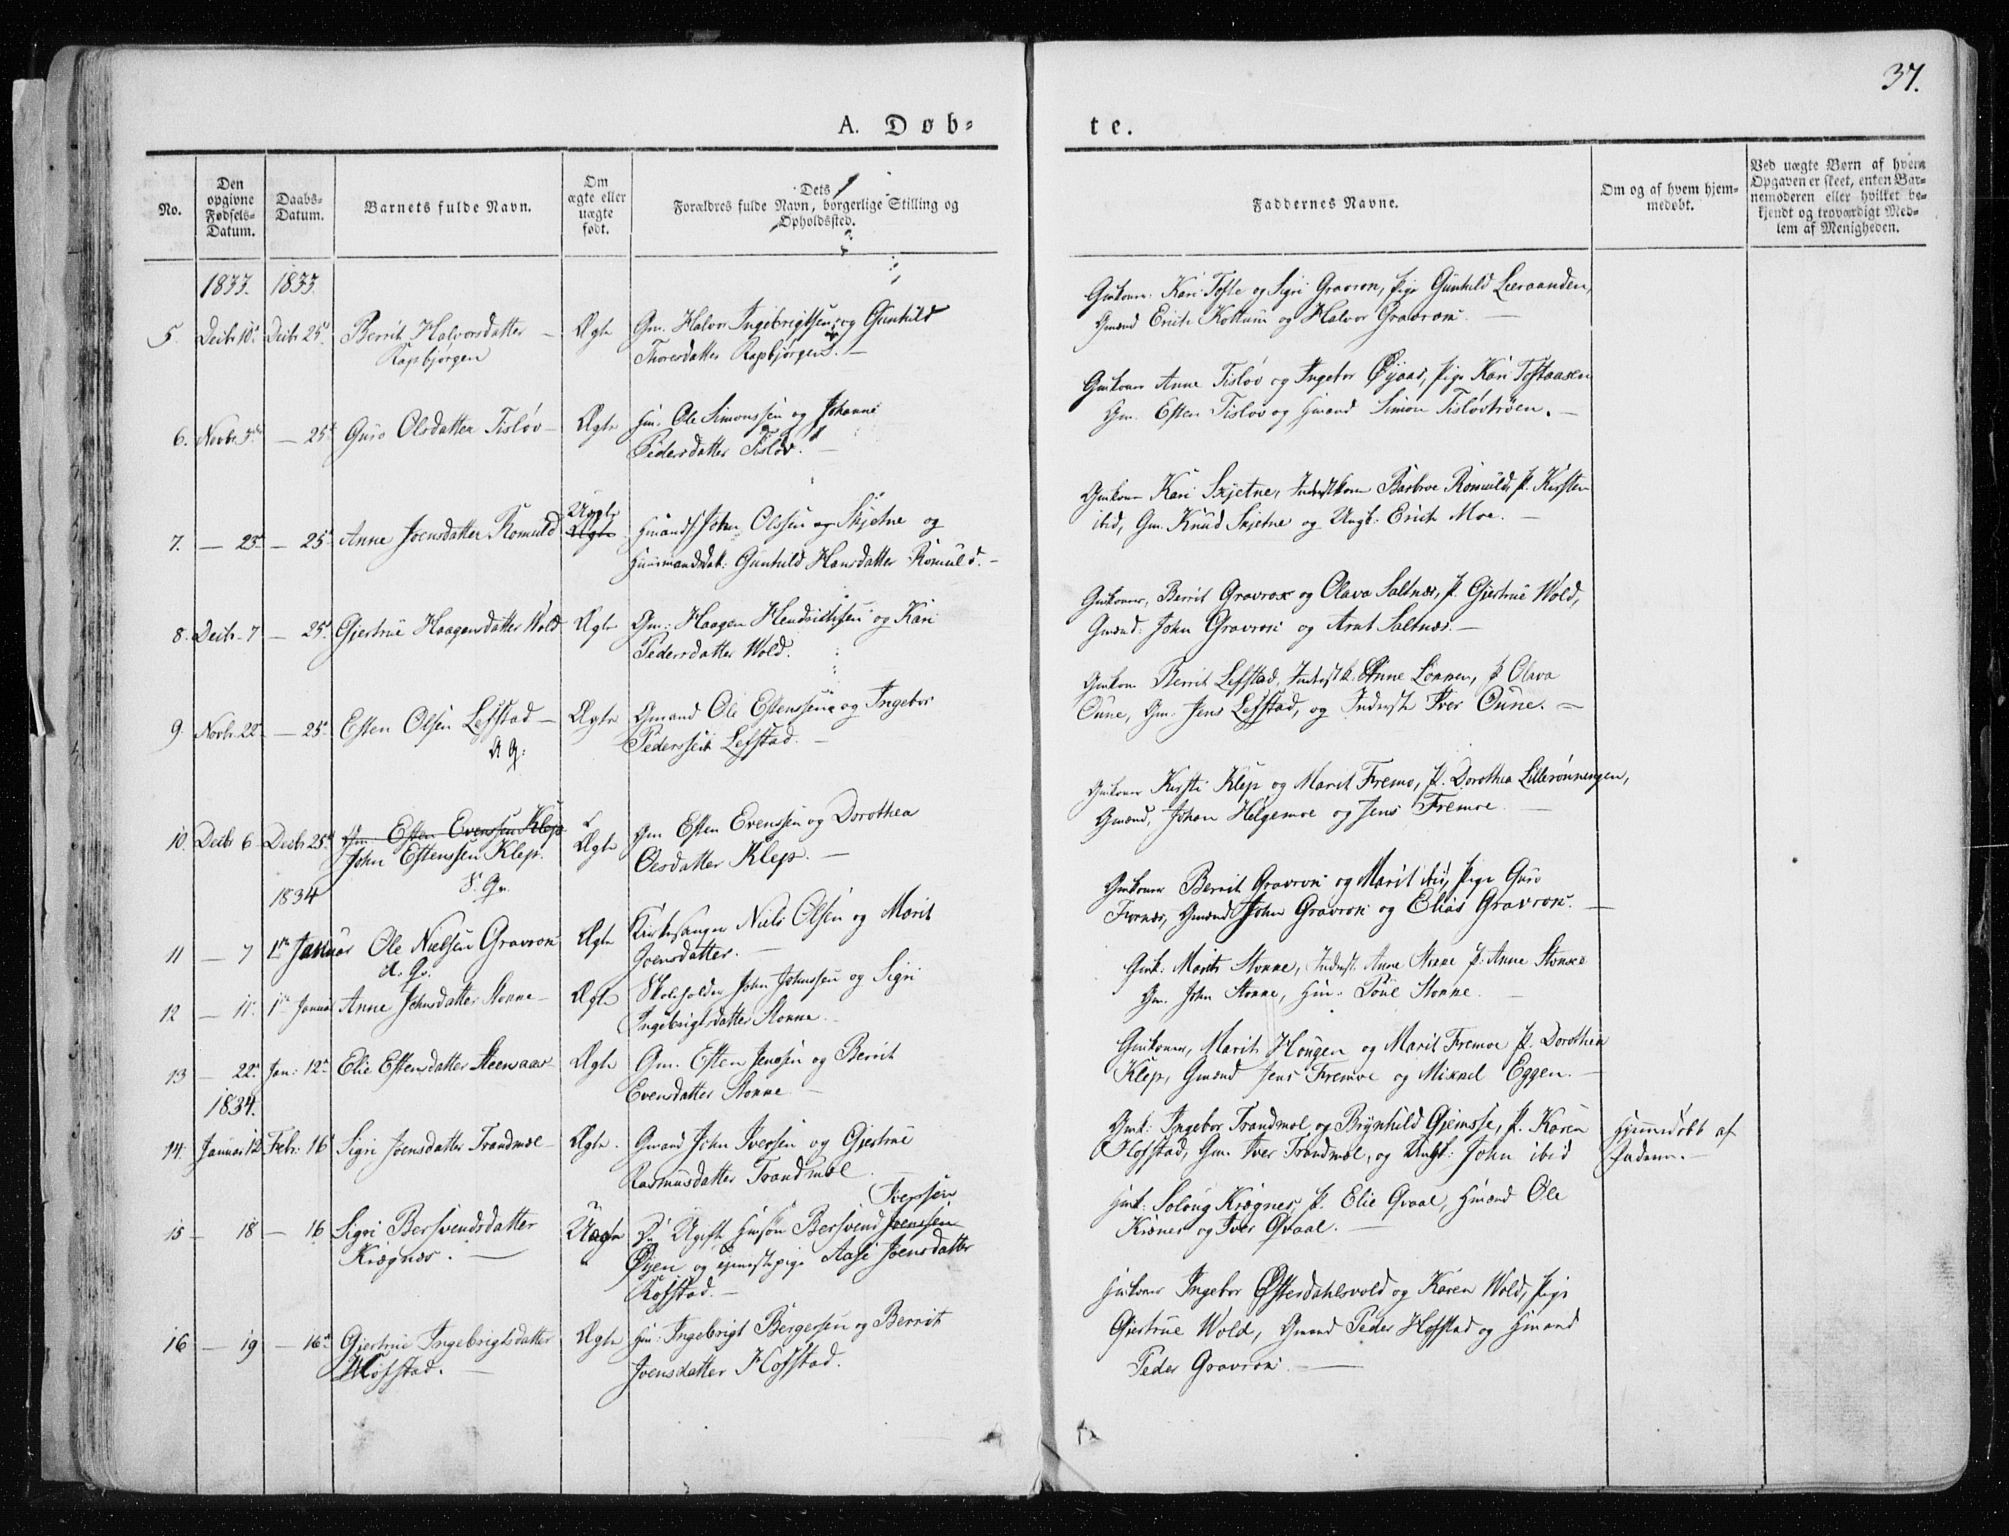 37.
A. Døb-
te.
No.
Den
opgivne
Fødsels-
Datum.
Daabs-
Datum.
Barnets fulde Navn.
Om
ægte eller
uægte
født.
Dets
Forældres fulde Navn, borgerlige Stilling og
Opholdssted.
Faddernes Navne.
Om og af hvem hjem-
medøbt.
Ved uægte Børn af hvem
Opgaven er skeet, enten Bar-
nemoderen eller hvilket be-
kjendt og troværdigt Med-
lem af Menigheden.
1833. 1833
5. Decbr 10. Decbr 25. Berrit Halvorsdatter — Ægte Gm. Halvor Ingebrigtsen og Gunhild
Rapbjørgen Thoresdatter Rapbjørgen. —
Gmkoner Kari Tofte og Sigri Gravrøn, Pige Gunhild Løvaanden,
Gmænd Erich Kottum og Halvor Gravrøn. —
6. Novbr — 25. Guro Olsdatter Tisløv — Ægte Hm. Ole Simonssen og Johanne
Pedersdatter Tisløv. —
Gmkoner Anne Tisløv og Ingebor Øjaas, Pige Kari Toftaasen
Gm. Esten Tisløv og Hmand Simon Tisløvtrøen. —
7. — 23. — 25. Anne Joensdatter Romuld Uægte
Ægte Gmands John Olssen Skjetne og
Huusmandsdat: Gunhild Hansdatter Romuld. —
Gmkone Kari Skjetne, Inderstkone Barbroe Romuld, P. Kirsten
ibid, Gm. Knud Skjetne og Ungk: Erich Moe. —
8. Decbr 7 — 25. Gjertrue Haagensdatter Wold Ægte Gm: Haagen Hendrichsen og Kari
Pedersdatter Wold.
Gmkoner, Berrit Gravrøn og Olava Saltnæs, P. Gjertrue Wold,
Gmænd: John Gravrøn og Arnt Saltnæs. —
9. Novbr. 22 — 25. Esten Olsen Lefstad — Ægte Gmand Ole Estenssen og Ingebor
Pedersdatter Lefstad. —
Gmkone Berrit Lefstad, Inderstk. Anne Lønnen, P Olava
Oune, Gm. Jens Lefstad, og Inderst Iver Oune. —
10. Decbr 6 Decbr 25. Gm Esten Evenssen Klep
John Estenssen Klep. Ægte Gm Esten Evenssen og Dorothea
Olsdatter Klep. —
Gmkoner Kirsti Klep og Marit Fremo, P. Dorothea Lillerønningen,
Gmænd, Johan Helgemoe og Jens Fremoe. —
1834
11 — 7 1ste Januar Ole Nielsen Gravrøn Ægte Kirkesanger Niels Olsen og Marit
Joensdatter. —
Gmkoner Berrit Gravrøn og Marit ibi, Pige Guro
Fornæs, Gmænd John Gravrøn og Elias Gravrøn. —
12 — 11. 1ste Januar Anne Johnsdatter Stonne — Ægte Skoleholder John Johnssen og Sigri
Ingebrigtsdatter Stonne. —
Gmk: Marit Stonne, Inderst. Anne P. Anne Stonne
Gm. John Stonne, Hm. Poul Stonne. —
13 — 22. Jan: 12. Elie Estensdatter Steensaas — Ægte Gm. Esten Jenssen og Berrit
Evensdatter Stonne. —
Gmkoner, Marit Hougen og Marit Fremoe P. Dorothea
Klep, Gmænd Jens Fremoe og Mikael Eggen. —
1834.
14. Januar 12 Febr: 16 Sigri Joensdatter Trandmæl — Ægte. Gmand John Iverssen og Gjertrue
Rasmusdatter Trandmæl —
Gmk: Ingebor Trandmæl og Brynhild Gjemsse, P. Karen
Hofstad, Gm. Iver Trandmæl, og Ungk: John ibid
Hjemmedøbt af
Faderen. —
15 — 18 — 16 Sigri Bersvendsdatter
Krægnæs. — Uægte Ugift Hmsøn Bersvend Joenssen Iverssen
Øyen og tjenestepige Aase Joensdatter
Rofstad. —
Hmk: Solvug Krægnes, P. Elie Qvaal, Hmænd Ole
Krænes og Iver Qvaal. —
16 — 19 — 16. Gjertrue Ingebrigtsdatter
Hofstad. — Ægte Hm: Ingebrigt Bergersen og Berrit
Joensdatter Hofstad.
Hmkoner Ingebor Østerdahlsvold og Karen Wold, Pige
Gjertrue Wold, Gmand Peder Hofstad og Hmand
Peder Gravrøn. —